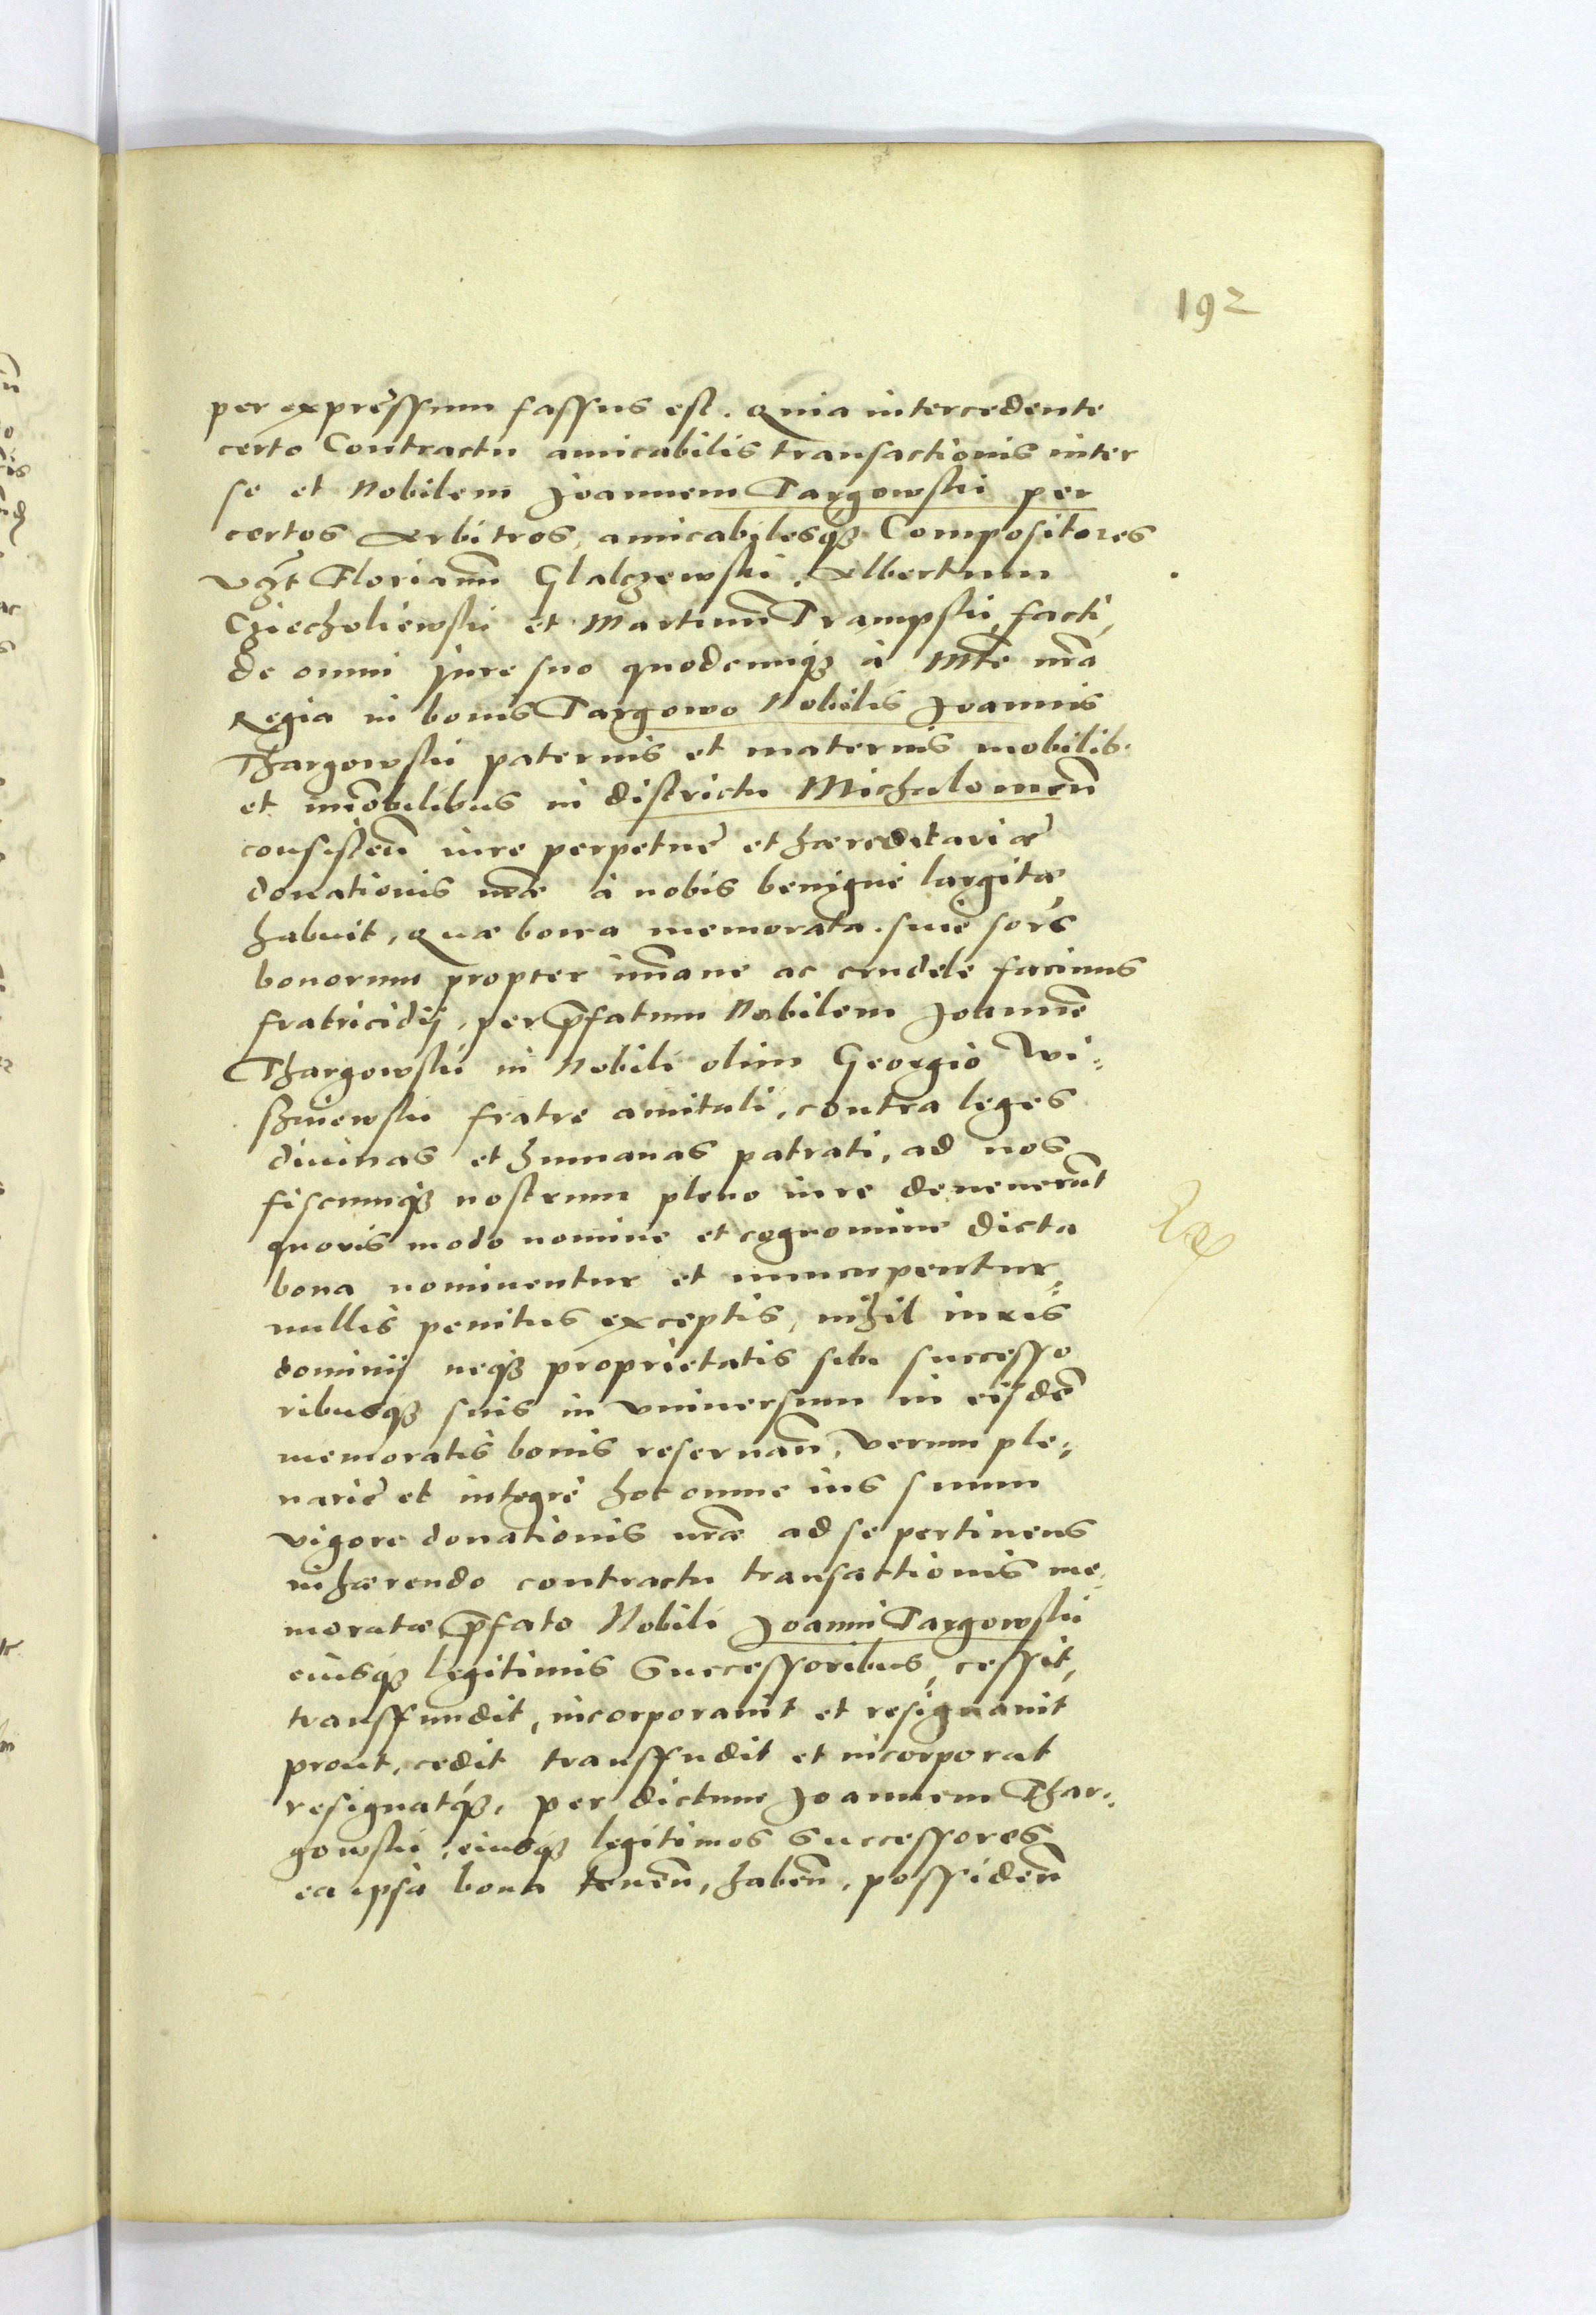 192
per expressum fassus est. Quia intercedente
certo Contractu amicabilis transactionis inter
se et Nobilem Joannem Targowski per
certos Arbitros, amicabilesq3 Compositores
vz̃t Florianũ Glalczewski, Albertum
Cziecholiewski et Martinũ Trampski, facti,
de omni jure suo quodcunq3 à Mtẽ nrã
Regia in bonis Targowo Nobilis Joannis
Thargowski paternis et maternis mobilib.
et im̃obilibus in districtu Michalowien̄
consisten̄ iure perpetuę et hæreditariæ
donationis nræ à nobis benignè largitæ
habuit, Quæ bona memorata siue sors
bonorum propter im̃ane ac crudele facinus
fratricidij, per p̃fatum Nobilem Joannẽ
Thargowski in Nobili olim Georgio Wi=
szniewski fratre amitali, contra leges
diuinas et humanas patrati, ad nos
fiscumq3 nostrum pleno iure deuenerũt
quouis modo nomine et cognomine dicta
bona nominentur et nuncupentur=
nullis penitus exceptis, nihil iuris
dominij neq3 proprietatis sibi successo
ribusq3 suis in vniuersum in eisdẽ
memoratis bonis reseruan̄, verum ple=
nariè et integrè hoc omne ius suum
vigore donationis nræ ad se pertinens
inhærendo contractu transactionis me=
moratæ p̃fato Nobili Joanni Targowski
eiusq3 legitimis Successoribus, cessit,
transffundit, incorporauit et resignauit
prout, cedit transffudit et incorporat
resignatq3, per dictum Joannem Thar=
gowski, eiusq3 legitimos Successores
ea ipsa bona tenen̄, haben̄, possiden̄